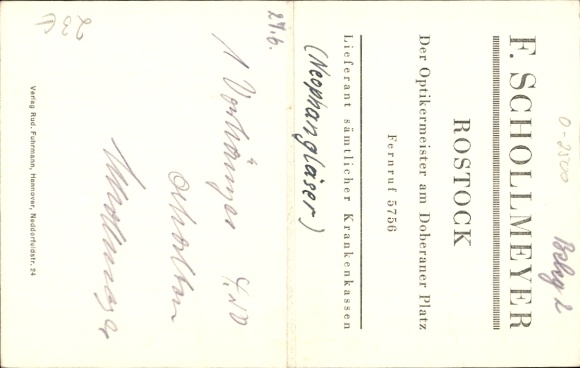 F. SCHOLLMEYER
ROSTOCK
Der Optikermeister am Doberaner Platz
Fernruf 5756
Lieferant sämtlicher Krankenkassen
(Neophangläser)
27.6.
1 Vorhänger
erhalten
Verlag Rud. Fuhrmann, Hannover, Neddorfeldstr. 24
0-2500
23€